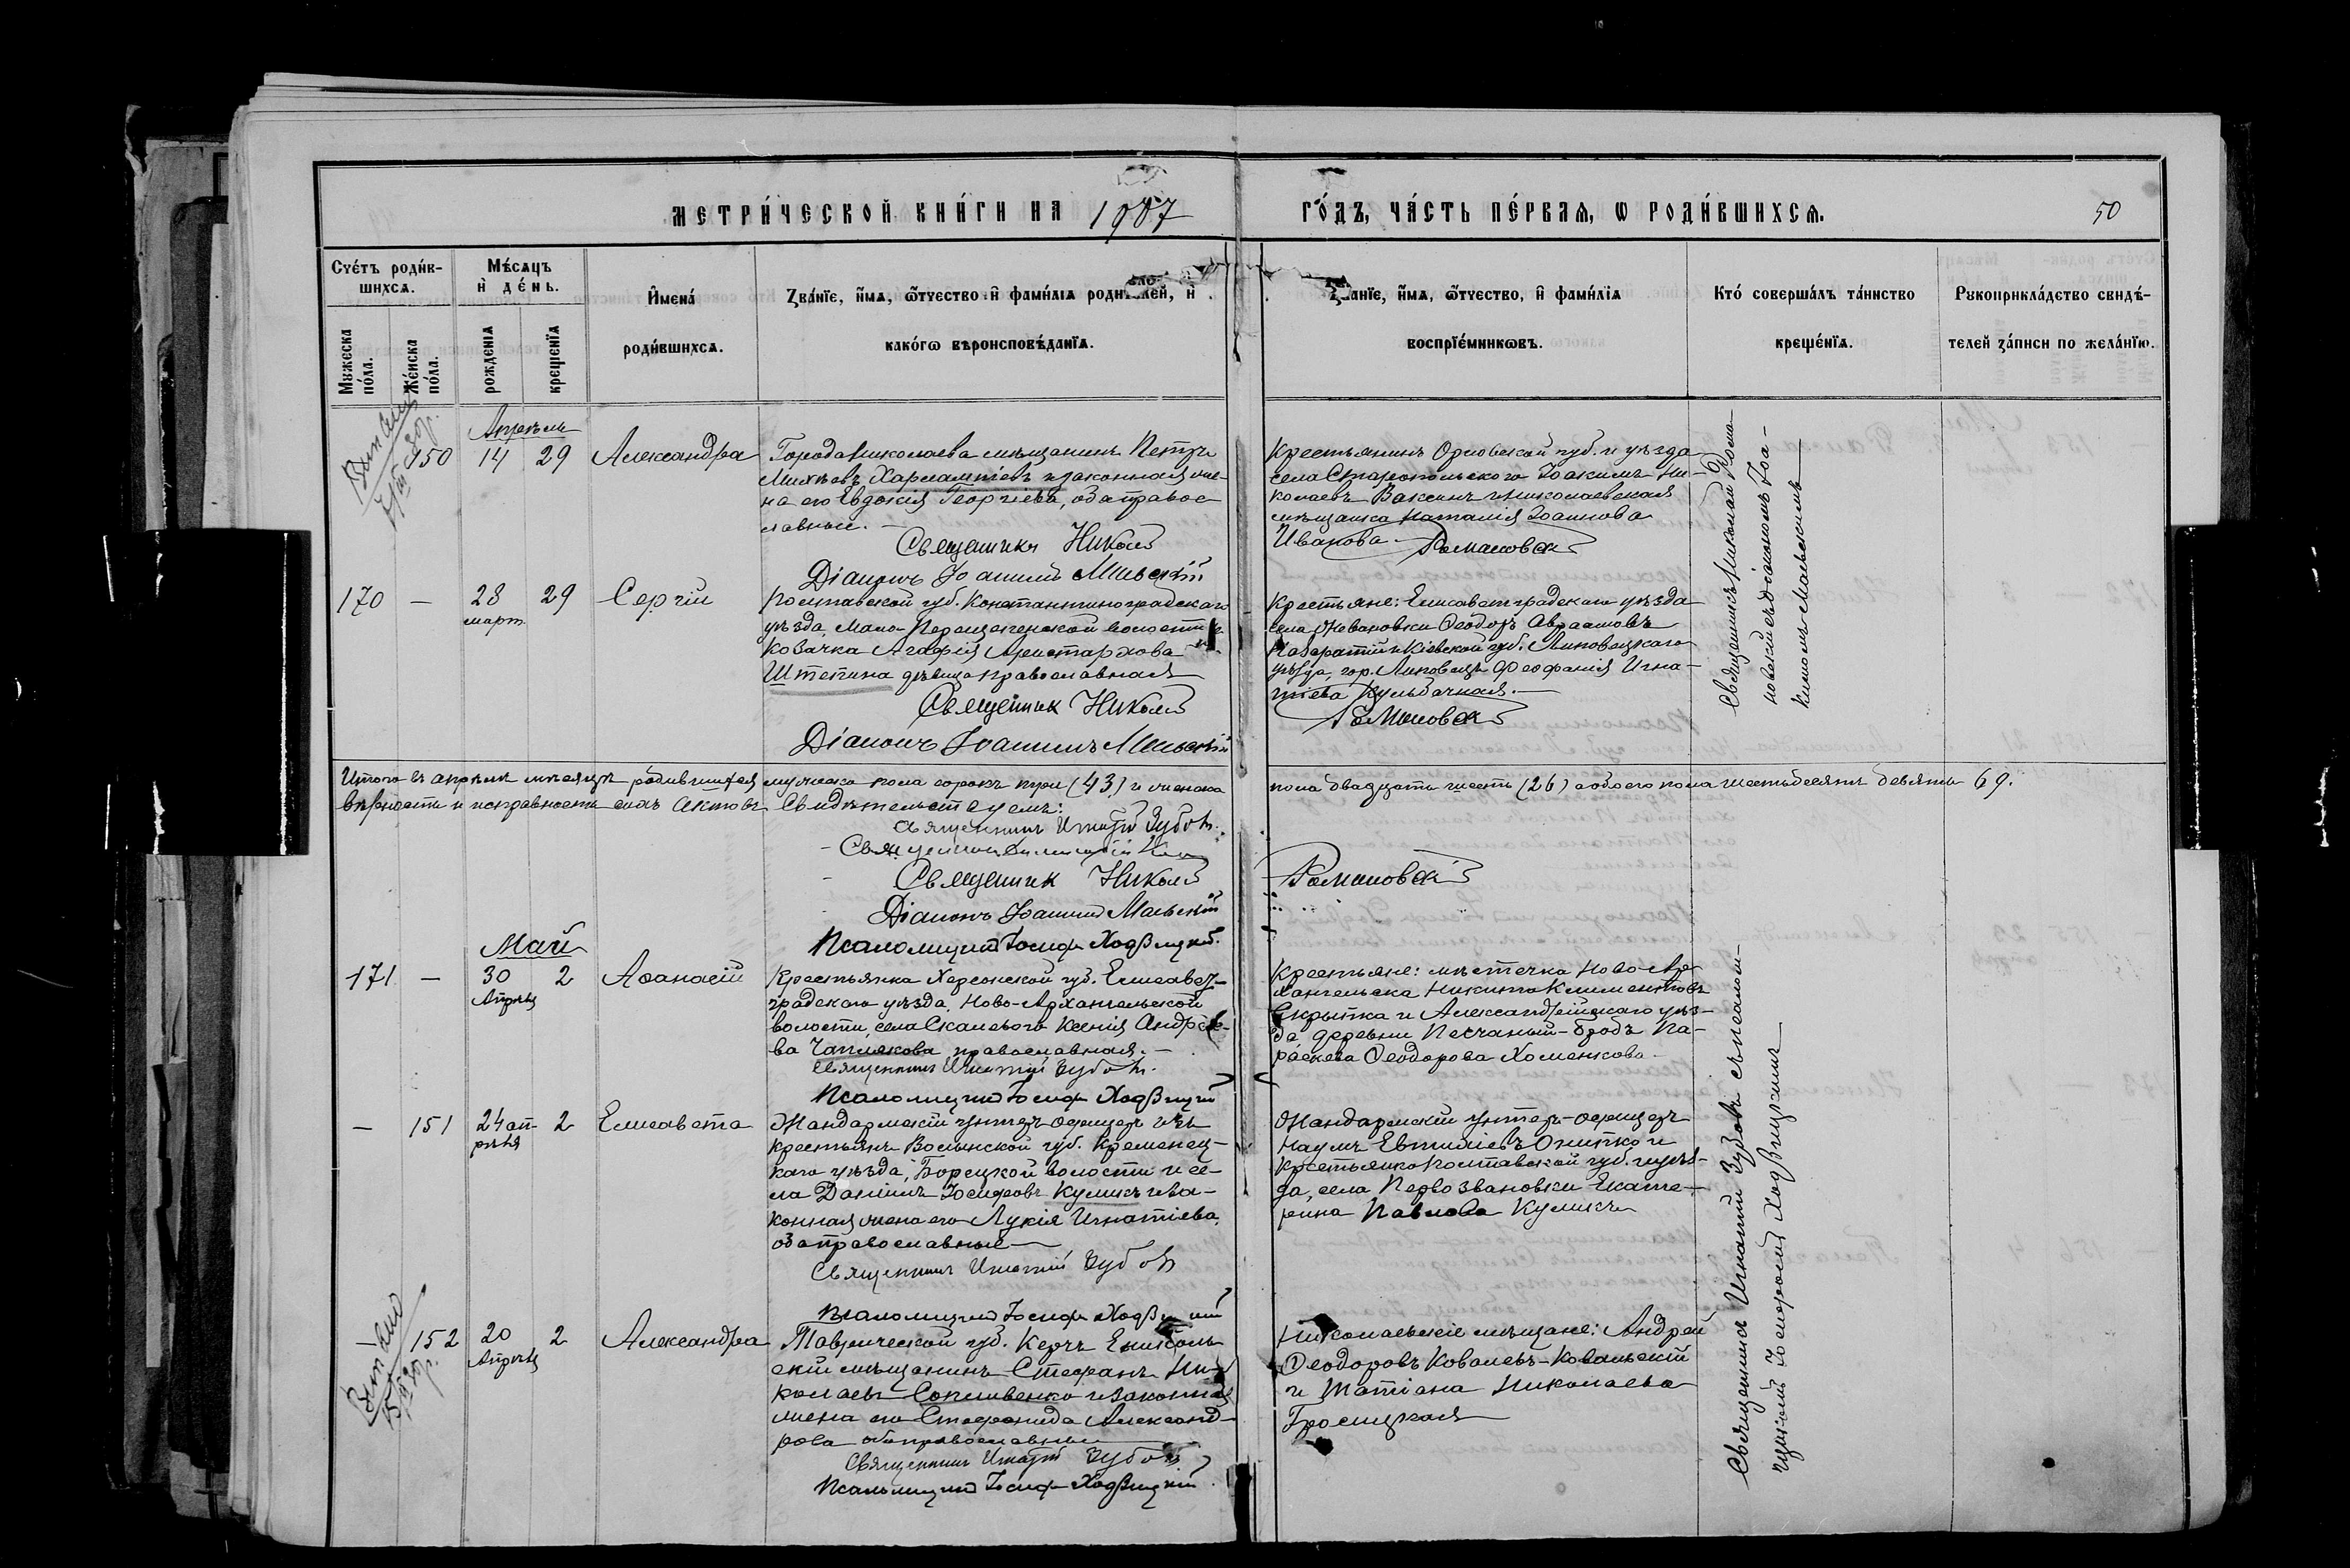 МЕТРИ́ЧЕСКОЙ КНИ́ГИ НА 1907 ГО́ДЪ, ЧА́СТЬ ПЕ́РВАЯ, Ѡ РОДИ́ВШИХСѦ.
50
Счéтъ роди́в-
шихсѧ.
Мужеска по́ла.
Же́нска по́ла.
Мѣ́сяцъ и де́нь.
рожденїѧ
крещенїѧ
Имена́
роди́вшихсѧ.
Зва́нїе, и́мѧ, ѻ҆́тчество и фами́лїѧ родителей, и
како́гѡ вѣроисповѣ́данїѧ.
Званїе, и́мѧ, ѻ҆́тчество, и фами́лїѧ
воспрїе́мникѡвъ.
Кто́ соверша́лъ та́инство
креще́нїѧ.
Рукоприкла́дство свидѣ́-
телей за́писи по жела́нїю.
Апрель
150 14 29 Александра
Города Николаева мѣщанинъ Петръ
Михѣевъ Харлампіевъ и законная же-
на его Евдокія Георгіева, оба право-
славные.
Священникъ Николай Романовскій
Діаконъ Іоакимъ Маевскій
Крестьянинъ Орловской губ. и уѣзда
села Іоакимъ Ни-
колаевъ и николаевская
мѣщанка Наталія Іоаннова
Иванова
Священникъ Николай Рома-
новскій съ діакономъ Іоа-
кимомъ Маевскимъ
170 — 28 март. 29 Сергій
Полтавской губ. Константиноградскаго
уѣзда, Мало-Перещепенской волости
козачка Агафія Аристархова
Штепина дѣвица православная
Священник Николай Романовскій
Діаконъ Іоакимъ Маевскій
Крестьяне: Елисаветградскаго уѣзда
села Ивановки Ѳеодоръ Авраамовъ
и Кіевской губ. Липовецкаго
уѣзда, гор. Липовецъ Феофанія Игна-
тіева Кульбачная.
Итого въ апрѣлѣ мѣсяцѣ родившихся мужеска пола сорокъ три (43) и женска пола двадцать шесть (26) а обоего пола шестьдесятъ девять 69.
вѣрности и исправности сихъ актовъ свидѣтельствуемъ:
Священникъ Игнатій Зубовъ.
Священникъ
Священник Николай Романовскій
Діаконъ Іоакимъ Маевскій
Псаломщикъ Іосифъ Ходзицкій.
Май
171 — 30 Апрѣля 2 Аѳанасій
Крестьянка Херсонской губ. Елисавет-
градскаго уѣзда, Ново-Архангельской
волости, села Скалеваго Ксенія Андрее-
ва Чаплякова, православная.
Священникъ Игнатій Зубовъ.
Псаломщикъ Іосифъ Ходзицкій
Крестьяне: мѣстечка Ново-Ар-
хангельска Никита Климентовъ
Скрыпка и Александрійскаго уѣз-
да деревни Песчаный-Бродъ Па-
раскева Ѳеодорова Хоменкова.
Священникъ Игнатій Зубовъ съ псалом-
щикомъ Іосифомъ Ходзицкимъ
— 151 24 ап-
рѣля 2 Елисавета
Жандармскій унтеръ-офицеръ изъ
крестьянъ Волынской губ. Кременец-
каго уѣзда, Борецкой волости и се-
ла Даніилъ Іосифовъ Куликъ и за-
конная жена его Лукія Игнатіева,
оба православные
Священникъ Игнатій Зубовъ
Псаломщикъ Іосифъ Ходзицкій
Жандармскій унтеръ-офицеръ
Наумъ Евтихіевъ Онипко и
крестьянка Полтавской губ. и уѣз-
да, села Первозвановки Екате-
рина Павлова Куликъ
— 152 20 Апрѣля 2 Александра
Таврической губ. Керчь Еникаль-
скій мѣщанинъ Стефанъ Ни-
колаевъ Сопливенко и законная
жена его Стефанида Александ-
рова оба православные
Священникъ Игнатій Зубовъ
Псаломщикъ Іосифъ Ходзицкій
Николаевскіе мѣщане: Андрей
Ѳеодоровъ Ковалевъ-Ковальскій
и Татіана Николаева